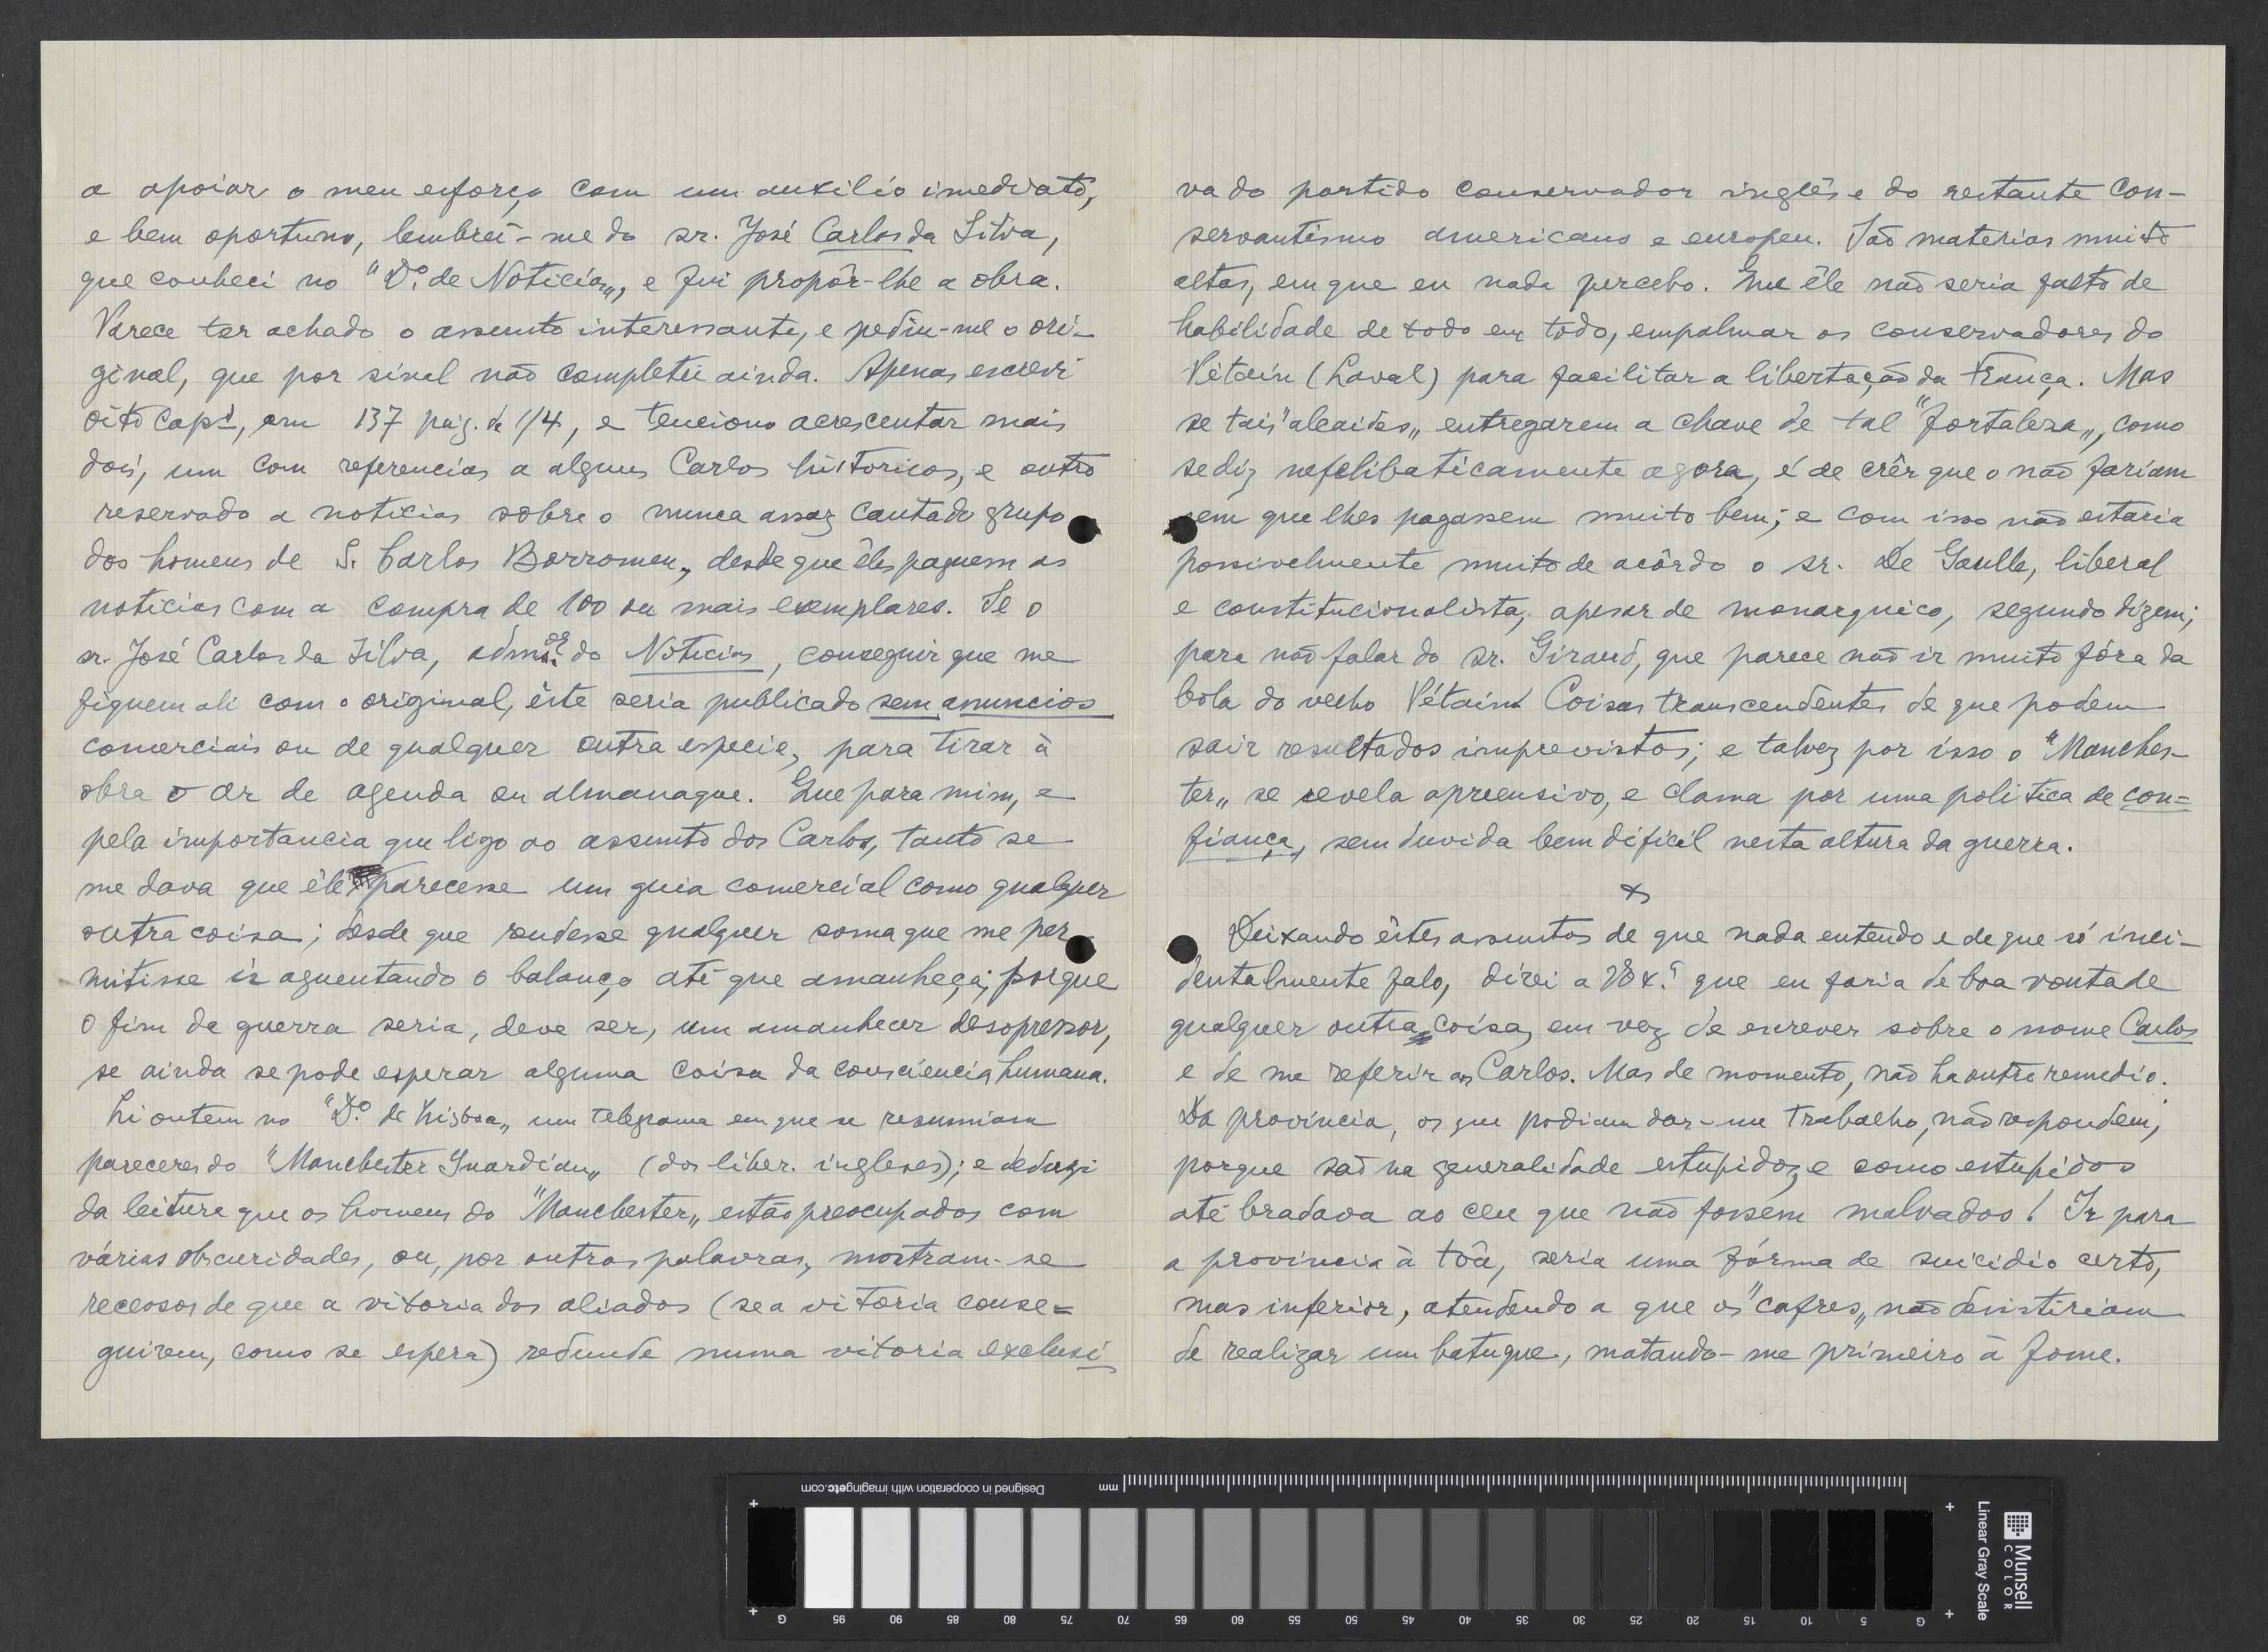 a apoiar o meu esforço com um auxilio imediato,
e bem oportuno, lembrei-me do sr. José Carlos da Silva,
que conheci no "D.º de Noticias„, e fui propôr-lhe a obra.
Parece ter achado o assunto interessante, e pediu-me o ori-
ginal, que por sinal não completei ainda. Apenas escrevi
oito cap.s, em 137 pag. de 1/4, e tenciono acrescentar mais
dois, um com referencias a alguns Carlos historicos, e outro
reservado a noticias sobre o nunca assaz cantado grupo
dos homens de S. Carlos Borromeu, desde que êles paguem as
noticias com a compra de 100 ou mais exemplares. Se o
sr. José Carlos da Silva, adm.or do Noticias, conseguir que me
fiquem ali com o original, êste seria publicado sem anuncios
comerciais ou de qualquer outra especie, para tirar à
obra o ar de agenda ou almanaque. Que para mim, e
pela importancia que ligo ao assunto dos Carlos, tanto se
me dava que êle parecesse um guia comercial como qualquer
outra coisa; desde que rendesse qualquer soma que me per
mitisse ir aguentando o balanço até que amanheça; porque
o fim da guerra seria, deve ser, um amanhecer desopressor,
se ainda se pode esperar alguma coisa da consciencia humana.
Li ontem no "D.º de Lisboa„ um telegrama em que se resumiam
pareceres do "Manchester Guardian„ (dos liber. ingleses); e deduzi
da leitura que os homens do "Manchester„ estão preocupados com
várias obscuridades, ou, por outras palavras, mostram-se
receosos de que a vitoria dos aliados (se a vitoria conse=
guirem, como se espera) redunde numa vitoria exclusi
va do partido conservador inglês e do restante con-
servantismo americano e europeu. São materias muito
altas, em que eu nada percebo. Que êle não seria falto de
habilidade de todo em todo, empalmar os conservadores do
Pétain (Laval) para facilitar a libertação da França. Mas
se tais "alcaides„ entregarem a chave de tal "fortaleza„, como
se diz nefelibaticamente agora, é de crêr que o não fariam
sem que lhes pagassem muito bem; e com isso não estaria
possivelmente muito de acôrdo o sr. De Gaulle, liberal
e constitucionalista, apesar de monarquico, segundo dizem;
para não falar do sr. Giraud, que parece não ir muito fóra da
bola do velho Pétain. Coisas transcendentes de que podem
sair resultados imprevistos; e talvez por isso o "Manches-
ter„ se revela apreensivo, e clama por uma politica de con=
fiança, sem duvida bem dificil nesta altura da guerra.
x
Deixando êstes assuntos de que nada entendo e de que só inci-
dentalmente falo, direi a V. Ex.ª que eu faria de boa vontade
qualquer outra coisa, em vez de escrever sobre o nome Carlos
e de me referir aos Carlos. Mas de momento, não ha outro remedio.
Da provincia, os que podiam dar-me trabalho, não respondem,
porque são na generalidade estupidos, e como estupidos
até bradava ao ceu que não fossem malvados! Ir para
a provincia à tôa, seria uma fórma de suicidio certo,
mas inferior, atendendo a que os "cafres„ não desistiriam
de realizar um batuque, matando-me primeiro à fome.
Designed in cooperation with imagingetc.com
mm
Munsell
COLOR
Linear Gray Scale
G 95 90 85 80 75 70 65 60 55 50 45 40 35 30 25 20 15 10 5 G